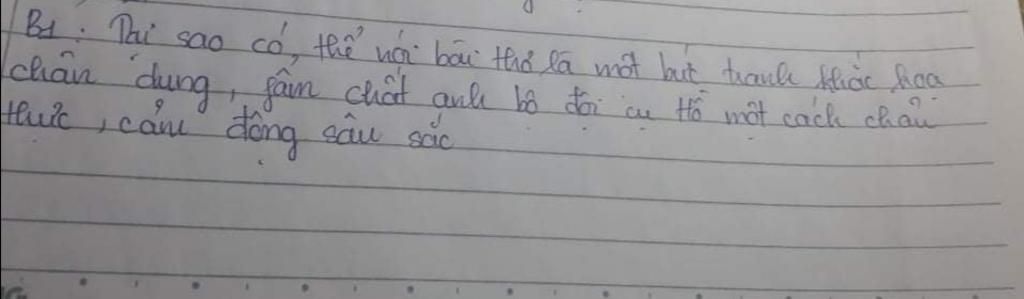 B1: Tại sao có thể nói bài thơ là một bức tranh khắc hoạ
chân dung, phẩm chất anh bộ đội cụ Hồ một cách chân
thực, cảm động sâu sắc